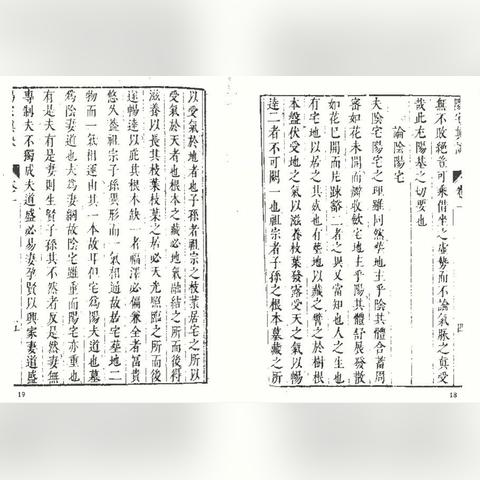 無不敗絕豈可乘借坐之虛勢而不論氣脈之真受
哉此尤陽基之切要也
論陰陽宅
夫陰宅陽宅之理雖同然塋地主乎陰其體合蓄周
密如花未開而瓣收歛宅地主乎陽其體舒展發散
如花巳開而花踈豁二者之異又當知也人之生也
有宅地以居之其威也有塋地以藏之譬之於樹根
本盤伏受地之氣以滋養枝葉發露受天之氣以暢
達二者不可闕一也祖宗者子孫之根本墓藏之所
18
以受氣於地者也子孫者祖宗之枝葉居宅之所以
受氣於天者也根本之藏必地氣融結之所而後得
滋養以長其枝葉枝葉之居必天光照臨之所而後
遂暢達以庇其根本一者福澤必偏兼全者冨貴
悠久葢祖宗子孫異形而一氣相通故居宅塋地二
物而一氣相運由其一本故耳但宅為陽夫道也墓
為陰妻道也夫為妻綱故陰宅雖重而陽宅亦重也
有是夫有是妻則生賢子孫其不然者反是然妻無
專制夫不獨成夫道盛必易妻孕賢以興家妻道盛
19